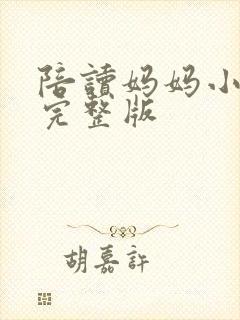 陪讀妈妈小
完整版
胡嘉許